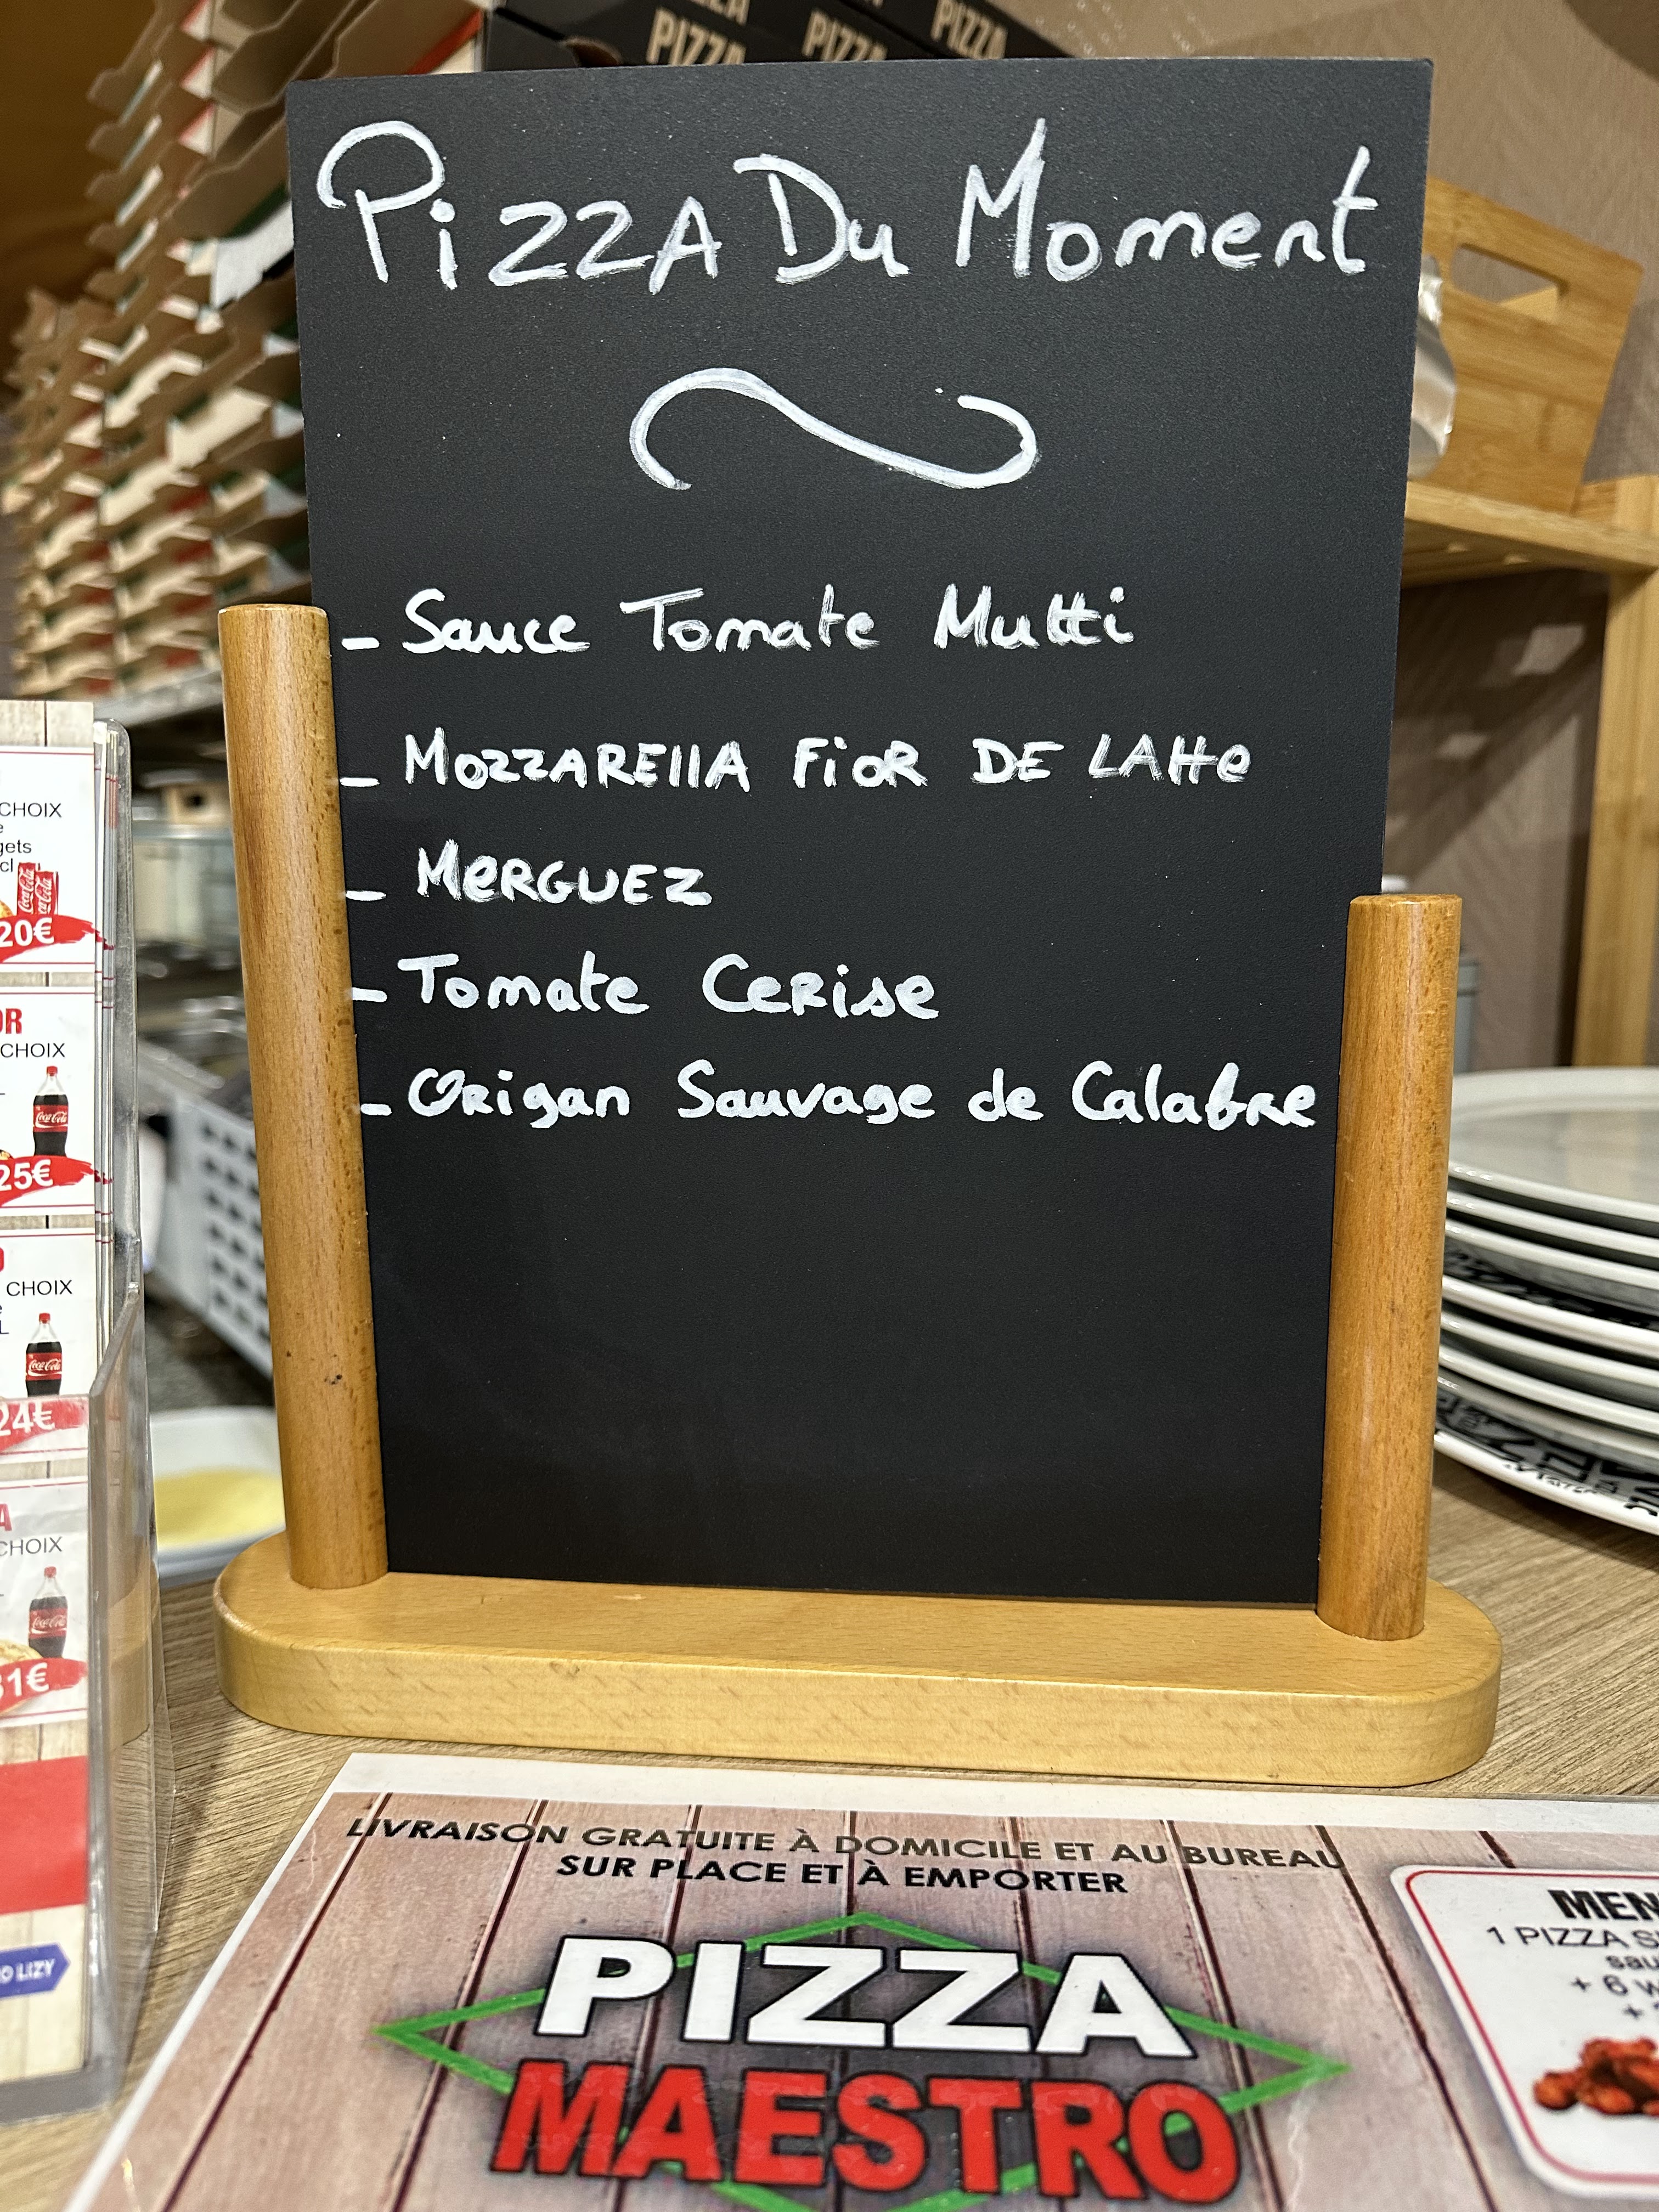 PIZZA
PIZZA
PIZZA
PiZZA Du Moment
- Sauce Tomate Mutti
- MOZZARELLA FiOR DE LAtte
- MeRGUEZ
- Tomate CeRise
- ORigan Sauvage de CalabRe
CHOIX
20€
CHOIX
Coca-Cola
25€
CHOIX
Coca-Cola
24€
CHOIX
Coca-Cola
31€
LIZY
LIVRAISON GRATUITE À DOMICILE ET AU BUREAU
SUR PLACE ET À EMPORTER
PIZZA
MAESTRO
1 PIZZA
+ 6